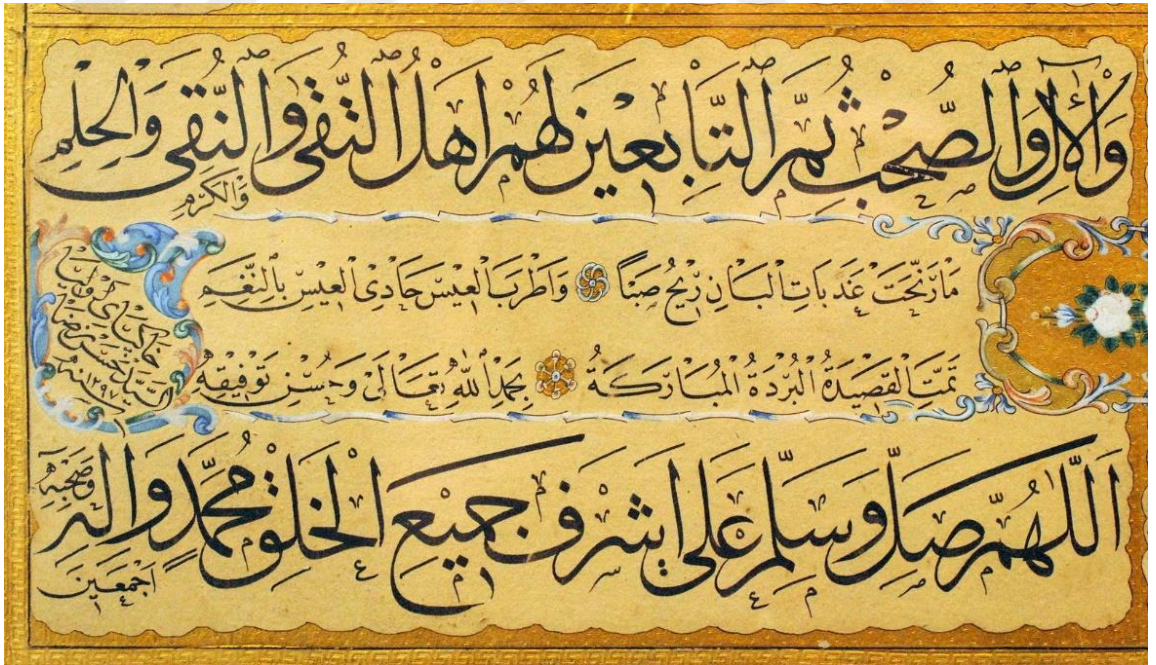 وَالْآلِ وَالصَّحْبِ ثُمَّ التَّابِعِينَ لَهُمْ اَهْلُ التُّقٰى وَالنُّقٰى وَالْحِلْمِ
وَالْكَرَمِ
مَا رَنَّحَتْ عَذَبَاتِ الْبَانِ رِيحُ صَبًا وَاَطْرَبَ الْعِيسَ حَادِى الْعِيسِ بِالنَّغَمِ
تَمَّتِ الْقَصِيدَةُ الْبُرْدَةُ الْمُبَارَكَةُ بِحَمْدِ اللّٰهِ تَعَالٰى وَحُسْنِ تَوْفِيقِهِ
اَللّٰهُمَّ صَلِّ وَسَلِّمْ عَلٰى اَشْرَفِ جَمِيعِ الْخَلْقِ مُحَمَّدٍ وَاٰلِهِ وَصَحْبِهِ
اَجْمَعِينَ
السيد حسن رضا
سنه ١٢٩٧